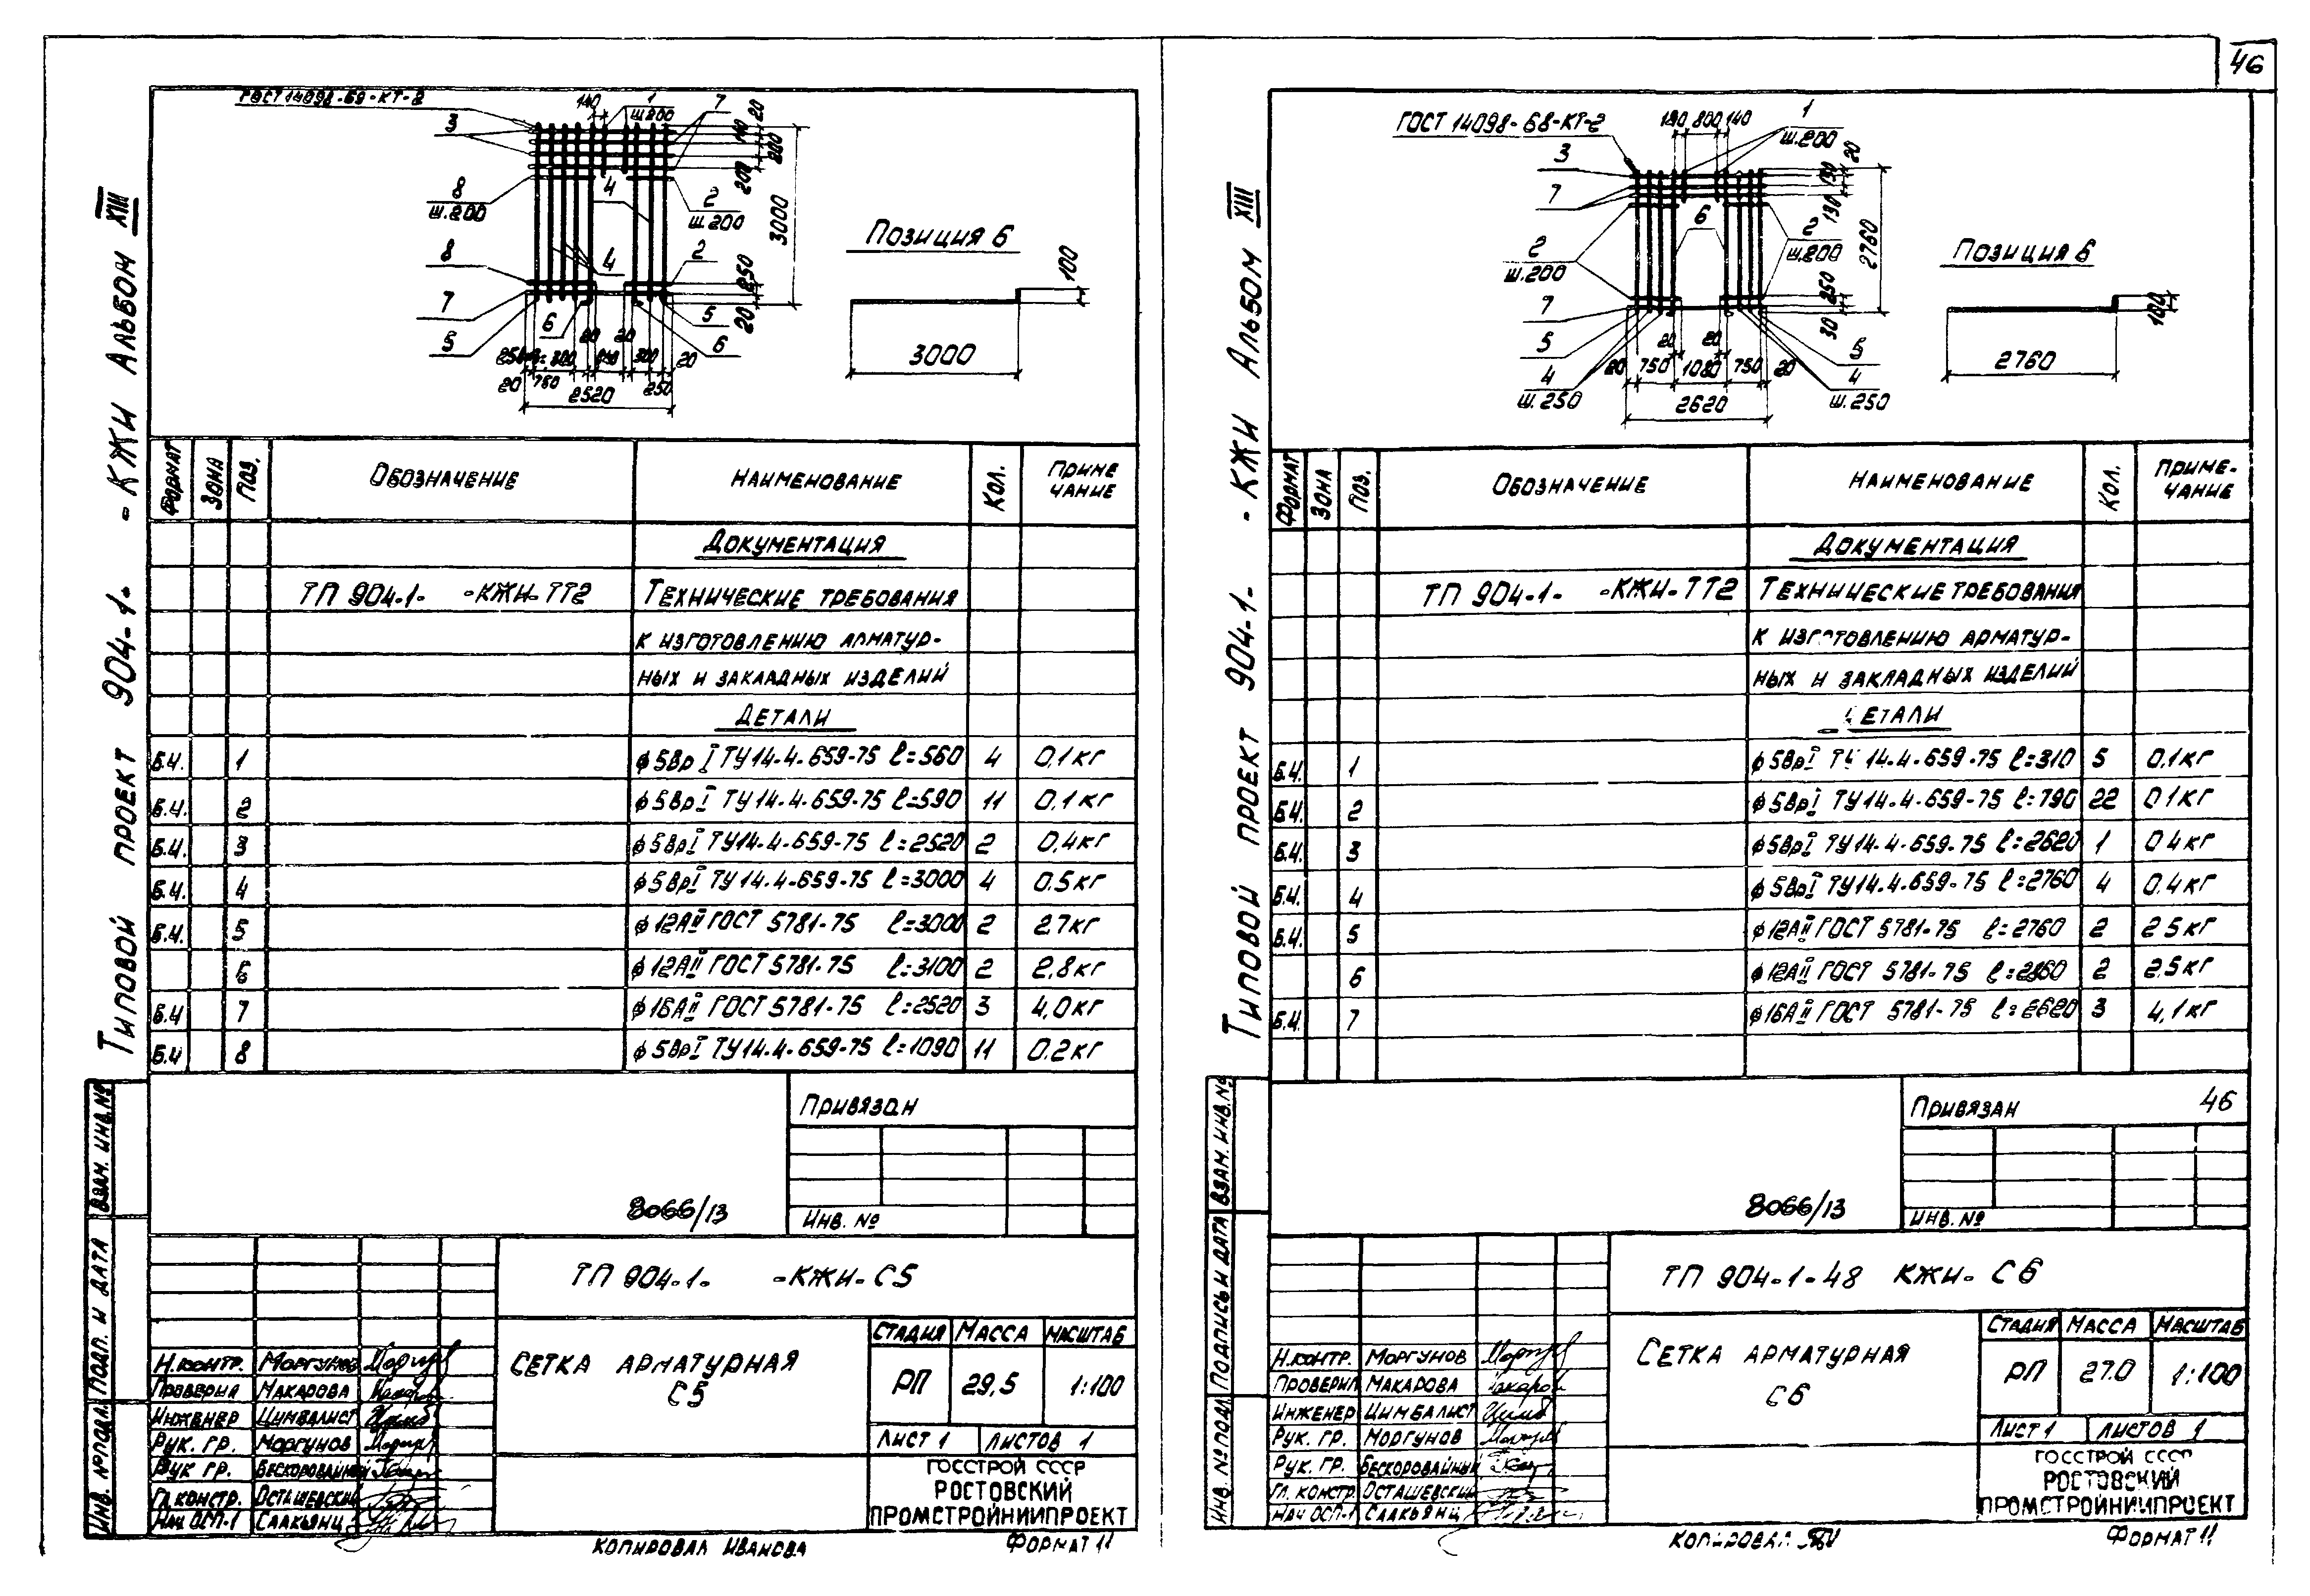 46
Типовой проект 904-1- -КЖИ Альбом XIII
140
1
ш.200
7
20
3
140
200
200
8
ш.200
4
2
ш.200
3000
8
4
2
250
7
6
5
20
5
6
20
20
300
300
20
20
750
250
2520
Позиция 6
100
3000
Формат
Зона
Поз.
Обозначение
Наименование
Кол.
Приме
чание
Документация
ТП 904-1- -КЖИ-ТТ2 Технические требования
к изготовлению арматур-
ных и закладных изделий
Детали
Б.Ч. 1 ф5ВрI ТУ14-4-659-75 ℓ=560 4 0,1кг
Б.Ч. 2 ф5ВрI ТУ14-4-659-75 ℓ=590 11 0,1кг
Б.Ч. 3 ф5ВрI ТУ14-4-659-75 ℓ=2520 2 0,4кг
Б.Ч. 4 ф5ВрI ТУ14-4-659-75 ℓ=3000 4 0.5кг
Б.Ч. 5 ф12АII ГОСТ 5781-75 ℓ=3000 2 2.7кг
6 ф12АII ГОСТ 5781-75 ℓ=3100 2 2,8кг
Б.Ч 7 ф16АII ГОСТ 5781-75 ℓ=2520 3 4,0кг
Б.Ч 8 ф5ВрI ТУ14-4-659-75 ℓ=1090 11 0.2кг
Привязан
8066/13
Инв. №
Взам. инв.№
Подп. и дата
Инв. №подл.
ТП 904-1- -КЖИ-С5
Сетка арматурная
С5
Стадия Масса Масштаб
РП 29,5 1:100
Лист 1 Листов 1
Госстрой СССР
Ростовский
Промстройниипроект
Н.контр. Моргунов
Проверил Макарова
Инженер Цимбалист
Рук. гр. Моргунов
Рук гр. Бескоровайный
Гл. констр. Осташевский
Нач ОСП-1 Саакьянц
Копировал Иванова
Формат 11
Типовой проект 904-1- -КЖИ Альбом XIII
ГОСТ 14098-68-КТ-2
800 140
1
ш.200
20
3
130
7
130
6
2
ш.200
2
ш.200
2760
7
250
30
5
20
20
5
4
ш.250
20 750 1080 750 20
4
ш.250
2620
Позиция 6
100
2760
Формат
Зона
Поз.
Обозначение
Наименование
Кол.
Приме-
чание
Документация
ТП 904-1- -КЖИ-ТТ2 Технические требования
к изготовлению арматур-
ных и закладных изделий
Детали
Б.Ч. 1 ф5ВрI ТУ 14-4-659-75 ℓ=310 5 0,1кг
Б.Ч. 2 ф5ВрI ТУ14-4-659-75 ℓ=790 22 0,1кг
Б.Ч. 3 ф5ВрI ТУ14-4-659-75 ℓ=2620 1 0,4кг
Б.Ч. 4 ф5ВрI ТУ14-4-659-75 ℓ=2760 4 0,4кг
Б.Ч. 5 ф12АII ГОСТ 5781-75 ℓ=2760 2 2.5кг
6 ф12АII ГОСТ 5781-75 ℓ=2860 2 2,5кг
Б.Ч. 7 ф16АII ГОСТ 5781-75 ℓ=2620 3 4,1кг
Привязан 46
8066/13
Инв. №
Взам. инв.№
Подпись и дата
Инв. №подл.
ТП 904-1-48 КЖИ-С6
Сетка арматурная
С6
Стадия Масса Масштаб
РП 27.0 1:100
Лист 1 Листов 1
Госстрой СССР
Ростовский
Промстройниипроект
Н.контр. Моргунов
Проверил Макарова
Инженер Цимбалист
Рук. гр. Моргунов
Рук. гр. Бескоровайный
Гл. констр. Осташевский
Нач ОСП-1 Саакьянц
Копировал
Формат 11